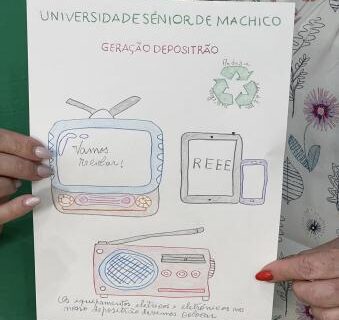 UNIVERSIDADE SÉNIOR DE MACHICO
GERAÇÃO DEPOSITRÃO
Vamos
reciclar!
REEE
Os equipamentos elétricos e eletrónicos no
nosso depositrão devemos colocar